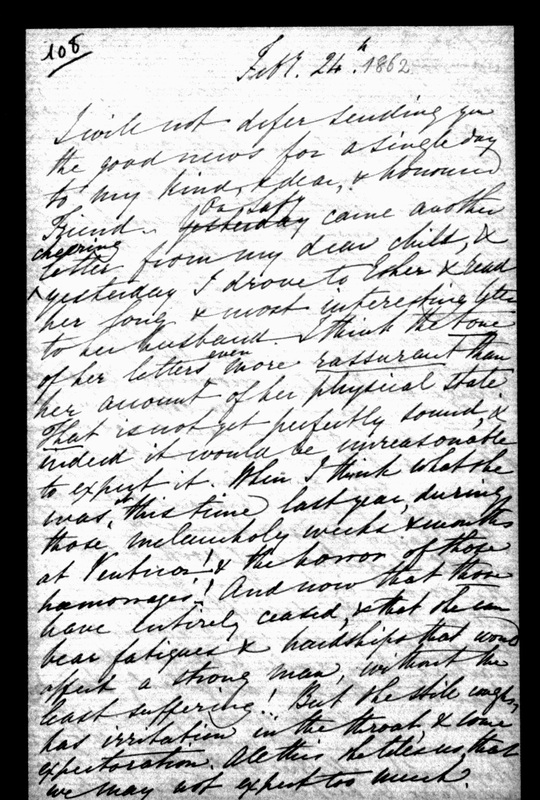 108
Feby. 24th. 1862
I will not defer sending you
the good news for a single day
to my kind, & dear, & honoured
Friend. On Saty
yesterday came another
cheering
letter from my dear child, &
yesterday I drove to Esher & read
her long & most interesting letter
to her husband. I think the tone
of her letters even more rassurant than
her account of her physical state
That is not yet perfectly sound, &
indeed it would be unreasonable
to expect it. When I think what she
was, this time last year, during
those melancholy weeks & months
at Ventnor! & the horror of those
hæmorrages! And now that those
have entirely ceased, & that she can
bear fatigues & hardships that would
affect a strong man, without the
least suffering! But she still coughs,
has irritation in the throat, & some
expectoration. All this she tells us, that
we may not expect too much.